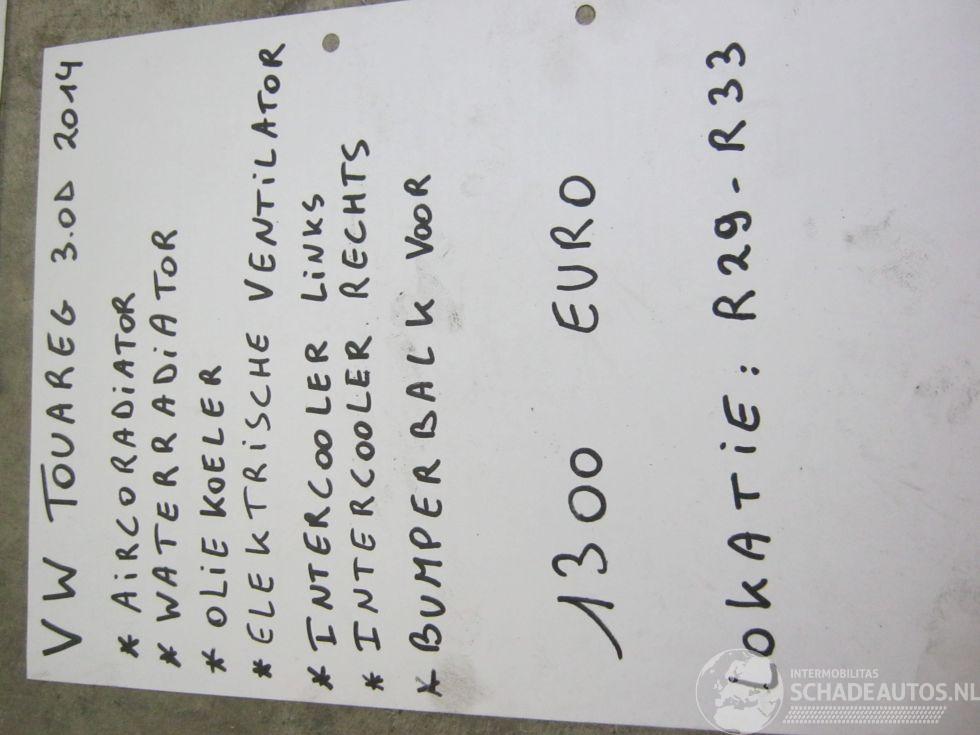 VW TOUAREG 3.0D 2014
* AiRCORADiATOR
* WATERRADiATOR
* OLiEKOELER
* ELEKTRISCHE VENTiLATOR
* INTERCOOLER LiNKS
* INTERCOOLER RECHTS
* BUMPERBALK VOOR
1300 EURO
LOKATiE: R29-R33
INTERMOBILITAS
SCHADEAUTOS.NL